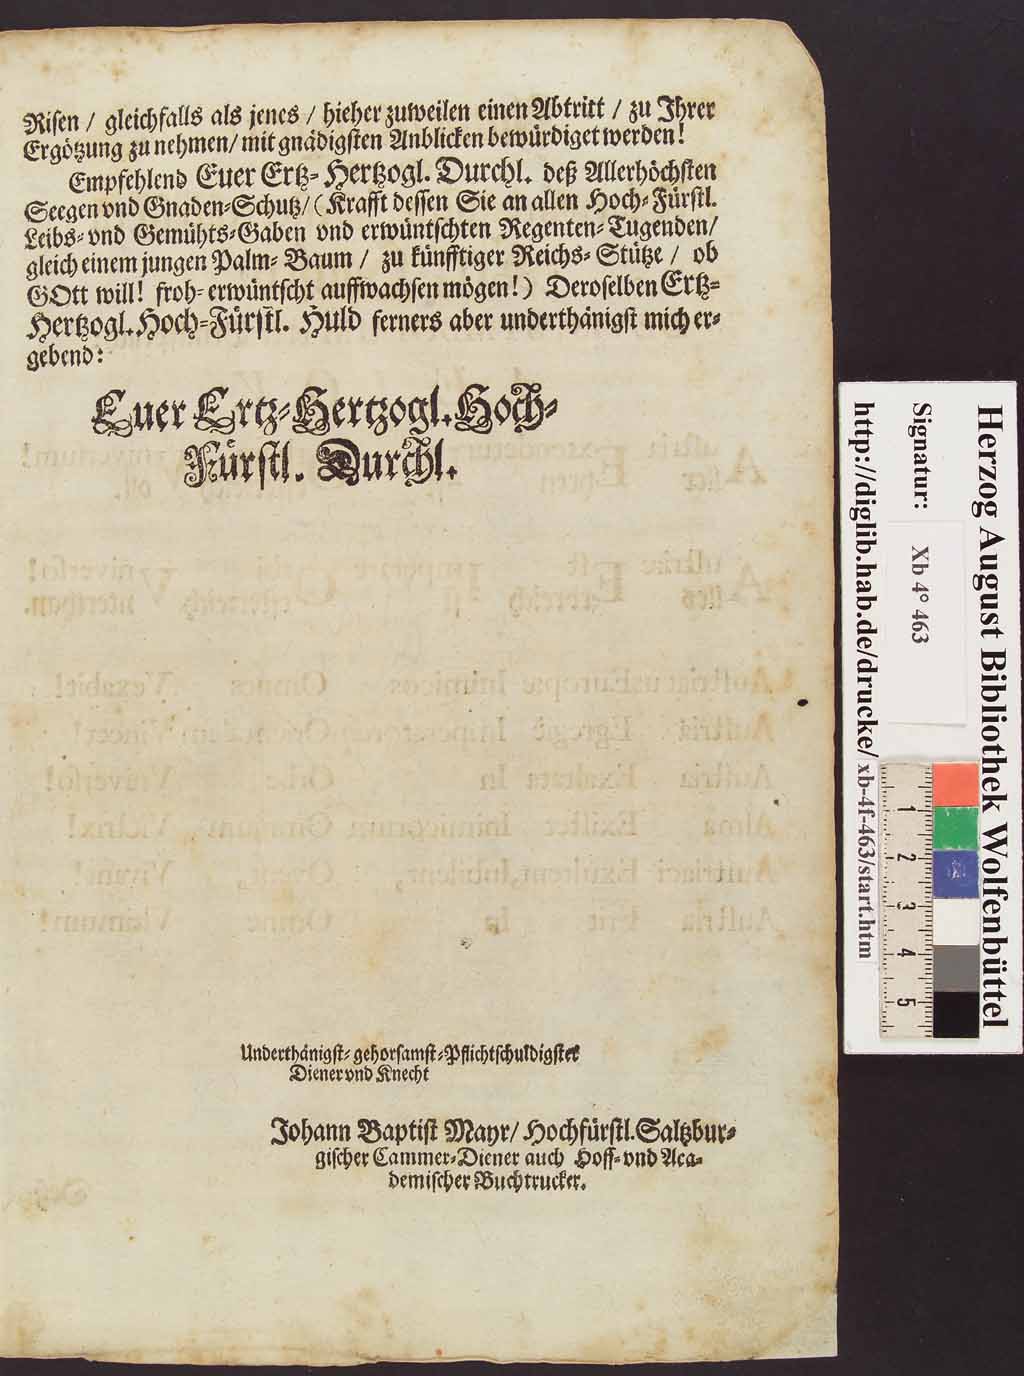 Risen / gleichfalls als jenes / hieher zuweilen einen Abtritt / zu Ihrer
Ergötzung zu nehmen / mit gnädigsten Anblicken bewürdiget werden!
Empfehlend Euer Ertz- Hertzogl. Durchl. deß Allerhöchsten
Seegen vnd Gnaden-Schutz / (Krafft dessen Sie an allen Hoch-Fürstl.
Leibs- vnd Gemühts-Gaben vnd erwüntschten Regenten-Tugenden /
gleich einem jungen Palm- Baum / zu künfftiger Reichs- Stütze / ob
GOtt will! froh- erwüntscht auffwachsen mögen!) Deroselben Ertz-
Hertzogl. Hoch-Fürstl. Huld ferners aber underthänigst mich er-
gebend:
Euer Ertz-Hertzogl. Hoch-
Fürstl. Durchl.
Underthänigst- gehorsamst-Pflichtschuldigster
Diener vnd Knecht
Johann Baptist Mayr / Hochfürstl. Saltzbur-
gischer Cammer-Diener auch Hoff- vnd Aca-
demischer Buchtrucker.
Herzog August Bibliothek Wolfenbüttel
Signatur: Xb 4° 463
http://diglib.hab.de/drucke/xb-4f-463/start.htm
1
2
3
4
5